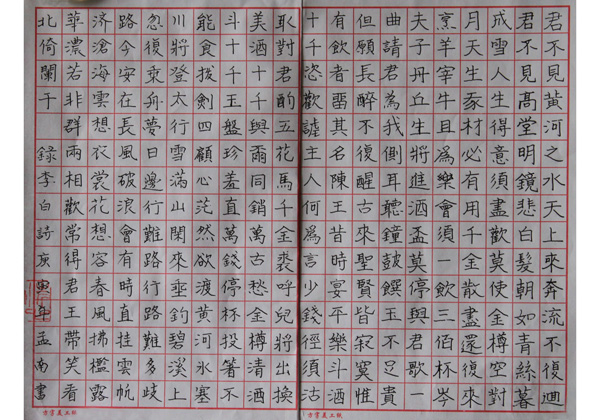 君不見黃河之水天上來奔流不復迴
君不見高堂明鏡悲白髮朝如青絲暮
成雪人生得意須盡歡莫使金樽空對
月天生我材必有用千金散盡還復來
烹羊宰牛且為樂會須一飲三伯杯岑
夫子丹丘生將進酒盃莫停與君歌一
曲請君為我側耳聽鐘鼓饌玉不足貴
但願長醉不復醒古來聖賢皆寂寞惟
有飲者留其名陳王昔時宴平樂斗酒
十千恣歡謔主人何為言少錢徑須沽
取對君酌五花馬千金裘呼兒將出換
美酒十千與爾同銷萬古愁金樽清酒
斗十千玉盤珍羞直萬錢停杯投箸不
能食拔劍四顧心茫然欲渡黃河冰塞
川將登太行雪滿山閑來垂釣碧溪上
忽復乘舟夢日邊行路難行路難多歧
路今安在長風破浪會有時直掛雲帆
濟滄海雲想衣裳花想容春風拂檻露
華濃若非群雨相歡常得君王帶笑看
北倚闌干 錄李白詩庚寅年孟南書